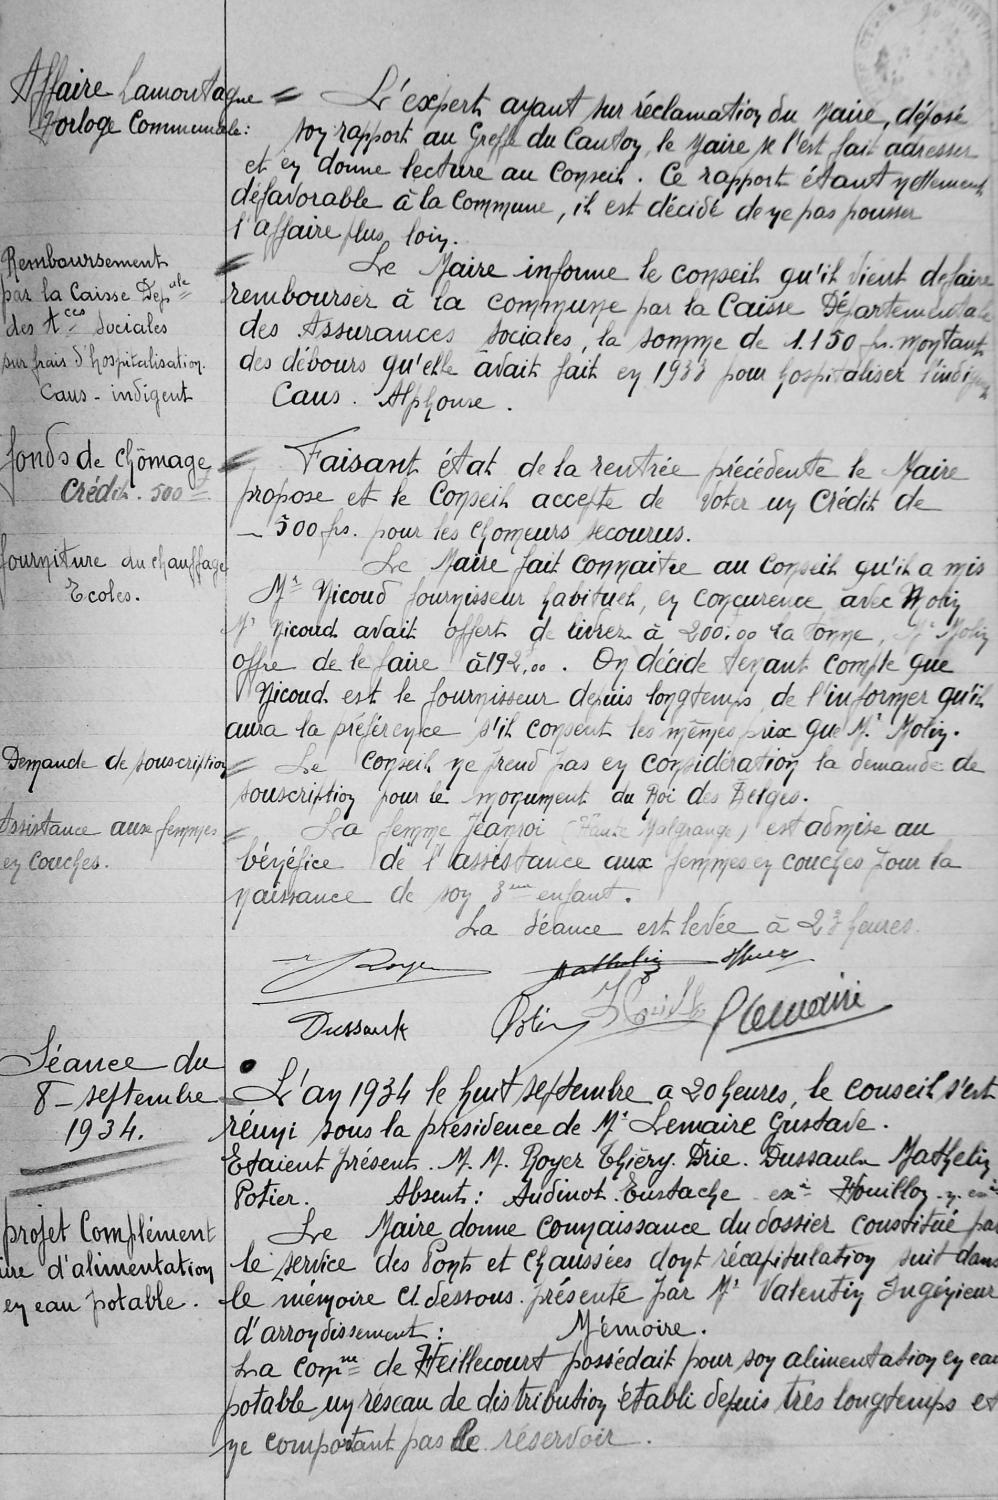 Affaire Lamontagne
Horloge Communale :
L'expert ayant sur réclamation du Maire, déposé
son rapport au Greffe du Canton, le Maire se l'est fait adresser
et en donne lecture au Conseil. Ce rapport étant nettement
défavorable à la Commune, il est décidé de ne pas pousser
l'affaire plus loin.
Remboursement
par la Caisse Dép^ale
des A^ces Sociales
sur frais d'hospitalisation.
Caus - indigent
Le Maire informe le conseil qu'il vient de faire
rembourser à la commune par la Caisse Départementale
des Assurances Sociales, la somme de 1.150 frs. montant
des débours qu'elle avait fait en 1933 pour hospitaliser l'indigent
Caus. Alphonse.
Fonds de chômage
Crédit. 500^f
Faisant état de la rentrée précédente le Maire
propose et le Conseil accepte de voter un Crédit de
- 500 frs. pour les chomeurs secourus.
Fourniture du chauffage
Ecoles.
Le Maire fait connaitre au Conseil qu'il a mis
M^r Nicoud fournisseur habituel, en concurence avec Molin
M^r Nicoud avait offert de livrer à 200,00 la tonne, M^r Molin
offre de le faire à 192,00. On décide tenant compte que
Nicoud est le fournisseur depuis longtemps, de l'informer qu'il
aura la préférence s'il consent les mêmes prix que M^r Molin.
Demande de souscription
Le Conseil ne prend pas en considération la demande de
souscription pour le monument du Roi des Belges.
Assistance aux femmes
en couches.
La femme Jeanroi (Haute Malgrange) est admise au
bénéfice de l'assistance aux femmes en couches pour la
naissance de son 3^me enfant.
La Séance est levée à 23 heures.
Royer Mathelin
Dussault Potier Lemaire
Séance du
8 - septembre
1934.
L'an 1934 le huit septembre a 20 heures, le conseil s'est
réuni sous la présidence de M^r Lemaire Gustave.
Etaient présent. M.M. Royer Thiéry. Drie. Dussault Mathelin
Potier. Absent : Audinot. Eustache ex^é Houillon
projet Complément
aire d'alimentation
en eau potable.
Le Maire donne connaissance du dossier constitué par
le service des Ponts et Chaussées dont récapitulation suit dans
le mémoire ci dessous présenté par M^r Valentin Ingénieur
d'arrondissement : Mémoire.
La com^ne de Heillecourt possédait pour son alimentation en eau
potable un réseau de distribution établi depuis très longtemps et
ne comportant pas de réservoir.